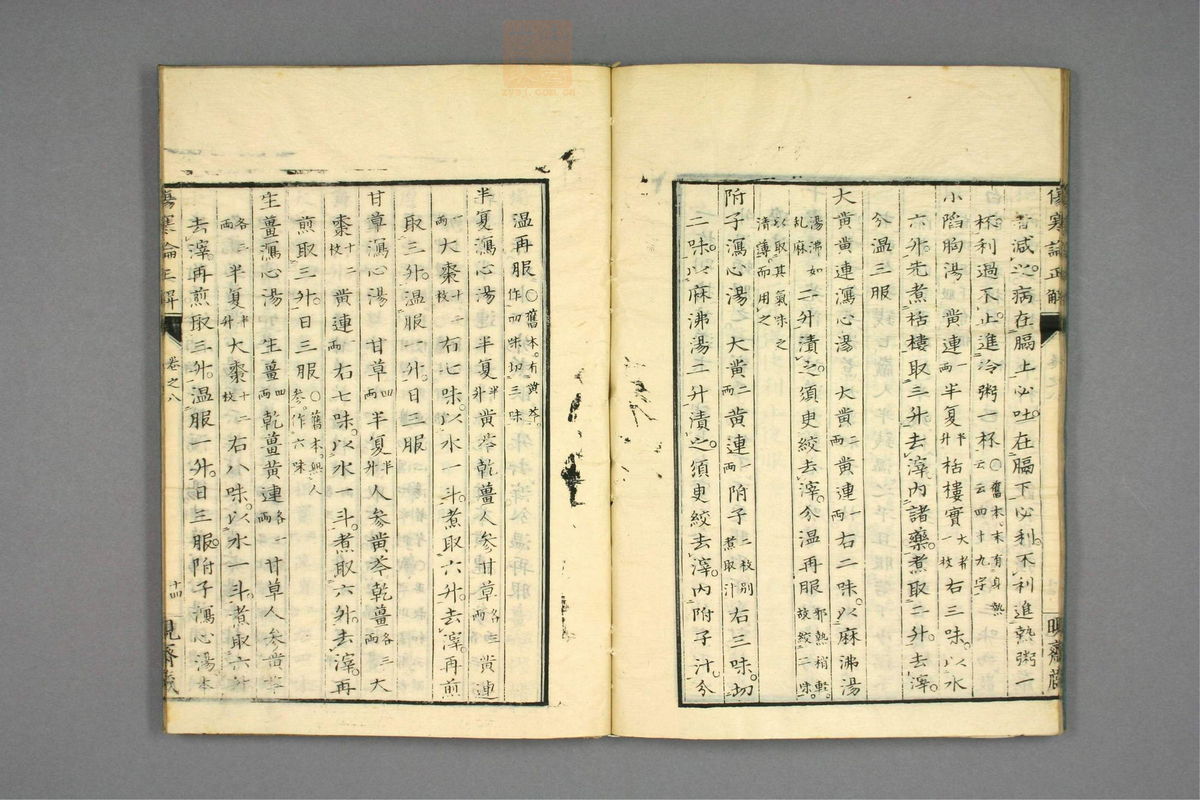 者減之。病在膈上必吐。在膈下必利。不利進熱粥一
杯。利過不止。進冷粥一杯。〇舊本。末有身熱云云四十九字。
小陷胸湯　黃連一兩半夏半升栝樓實大者一枚右三味。以水
六升。先煮栝樓取三升去滓。內諸藥。煮取二升。去滓。
分溫三服
大黃黃連瀉心湯　大黃二兩黃連一兩右二味。以麻沸湯
湯沸如亂麻二升漬之。須臾絞去滓。分溫再服邪熱稍輕。故絞二味。
以取其氣味之清薄而用之
附子瀉心湯　大黃二兩黃連一兩附子一枚別煮取汁右三味。切
二味。以麻沸湯二升漬之。須臾絞去滓。內附子汁。分
傷寒論正解
溫再服〇舊本。有黃芩。作四味切三味
半夏瀉心湯　半夏半升黃芩乾薑人參甘草各三兩黃連
一兩大棗十二枚右七味。以水一斗。煮取六升。去滓。再煎
取三升。溫服一升。日三服
甘草瀉心湯　甘草四兩半夏半升人參黃芩乾薑各三兩大
棗十二枚黃連一兩右七味。以水一斗。煮取六升。去滓。再
煎取三升。日三服〇舊本。無人參。作六味
生薑瀉心湯　生薑四兩乾薑黃連各一兩甘草人參黃芩
各三兩半夏半升大棗十二枚右八味。以水一斗。煮取六升
去滓。再煎取三升。溫服一升。日三服。附子瀉心湯本
傷寒論正解　卷之八　十四